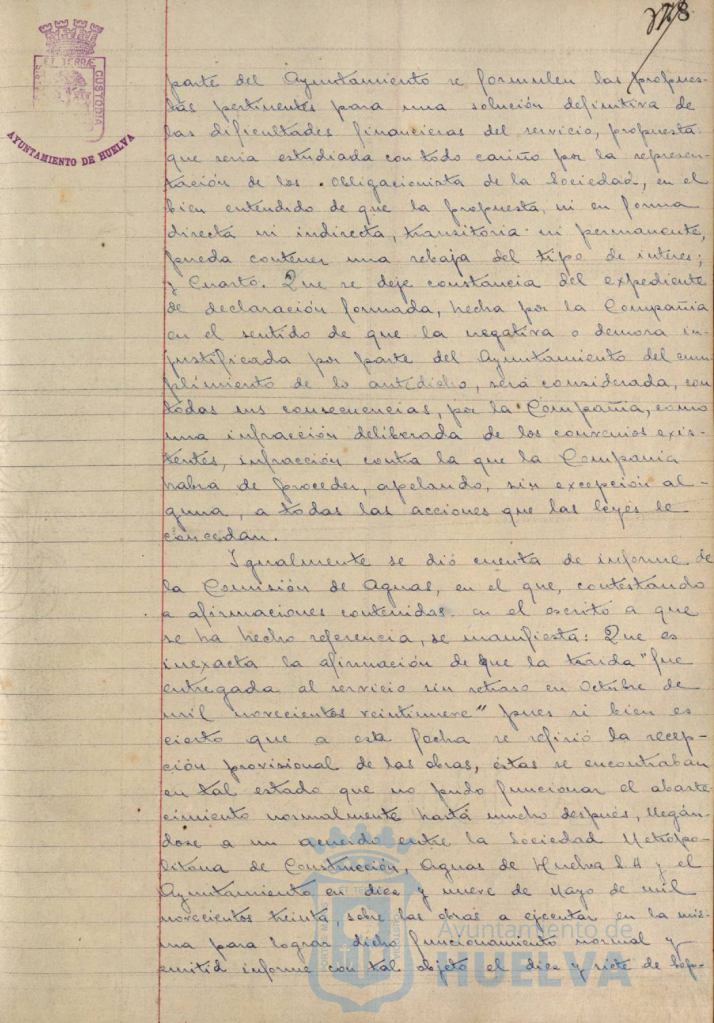 378
PORTUS MARIS ET TERRÆ CUSTODIA
AYUNTAMIENTO DE HUELVA
parte del Ayuntamiento se formulen las propues-
tas pertinentes para una solución definitiva de
las dificultades financieras del servicio, propuesta
que seria estudiada con todo cariño por la represen-
tación de los Obligacionista de la Sociedad, en el
bien entendido de que la propuesta, ni en forma
directa ni indirecta, transitoria ni permanente,
pueda contener una rebaja del tipo de interes;
y Cuarto. Que se deje constancia del expediente
de declaración formada, hecha por la Compañia
en el sentido de que la negativa o demora in-
justificada por parte del Ayuntamiento del cum-
plimiento de lo antedicho, será considerada, con
todas sus consecuencias, por la Compañia, como
una infracción deliberada de los convenios exis-
tentes, infracción contra la que la Compania
habra de proceder, apelando, sin excepcion al-
guna, a todas las acciones que las leyes le
concedan.
Igualmente se dió cuenta de informe de
la Comisión de Aguas, en el que, contestando
a afirmaciones contenidas en el escrito a que
se ha hecho referencia, se manifiesta: Que es
inexacta la afirmación de que la traida "fue
entregada al servicio sin retraso en Octubre de
mil novecientos veintinueve" pues si bien es
cierto que a esta fecha se refirió la recep-
ción provisional de las obras, éstas se encontraban
en tal estado que no pudo funcionar el abaste-
cimiento normalmente hasta mucho después, llegán-
dose a un acuerdo entre la Sociedad Metropo-
litana de Construcción, Aguas de Huelva S.A y el
Ayuntamiento en diez y nueve de Mayo de mil
novecientos treinta, sobre las obras a ejecutar en la mis-
ma para lograr dicho funcionamiento normal y
emitid informe con tal objeto el diez y siete de Sep-
Ayuntamiento de
HUELVA